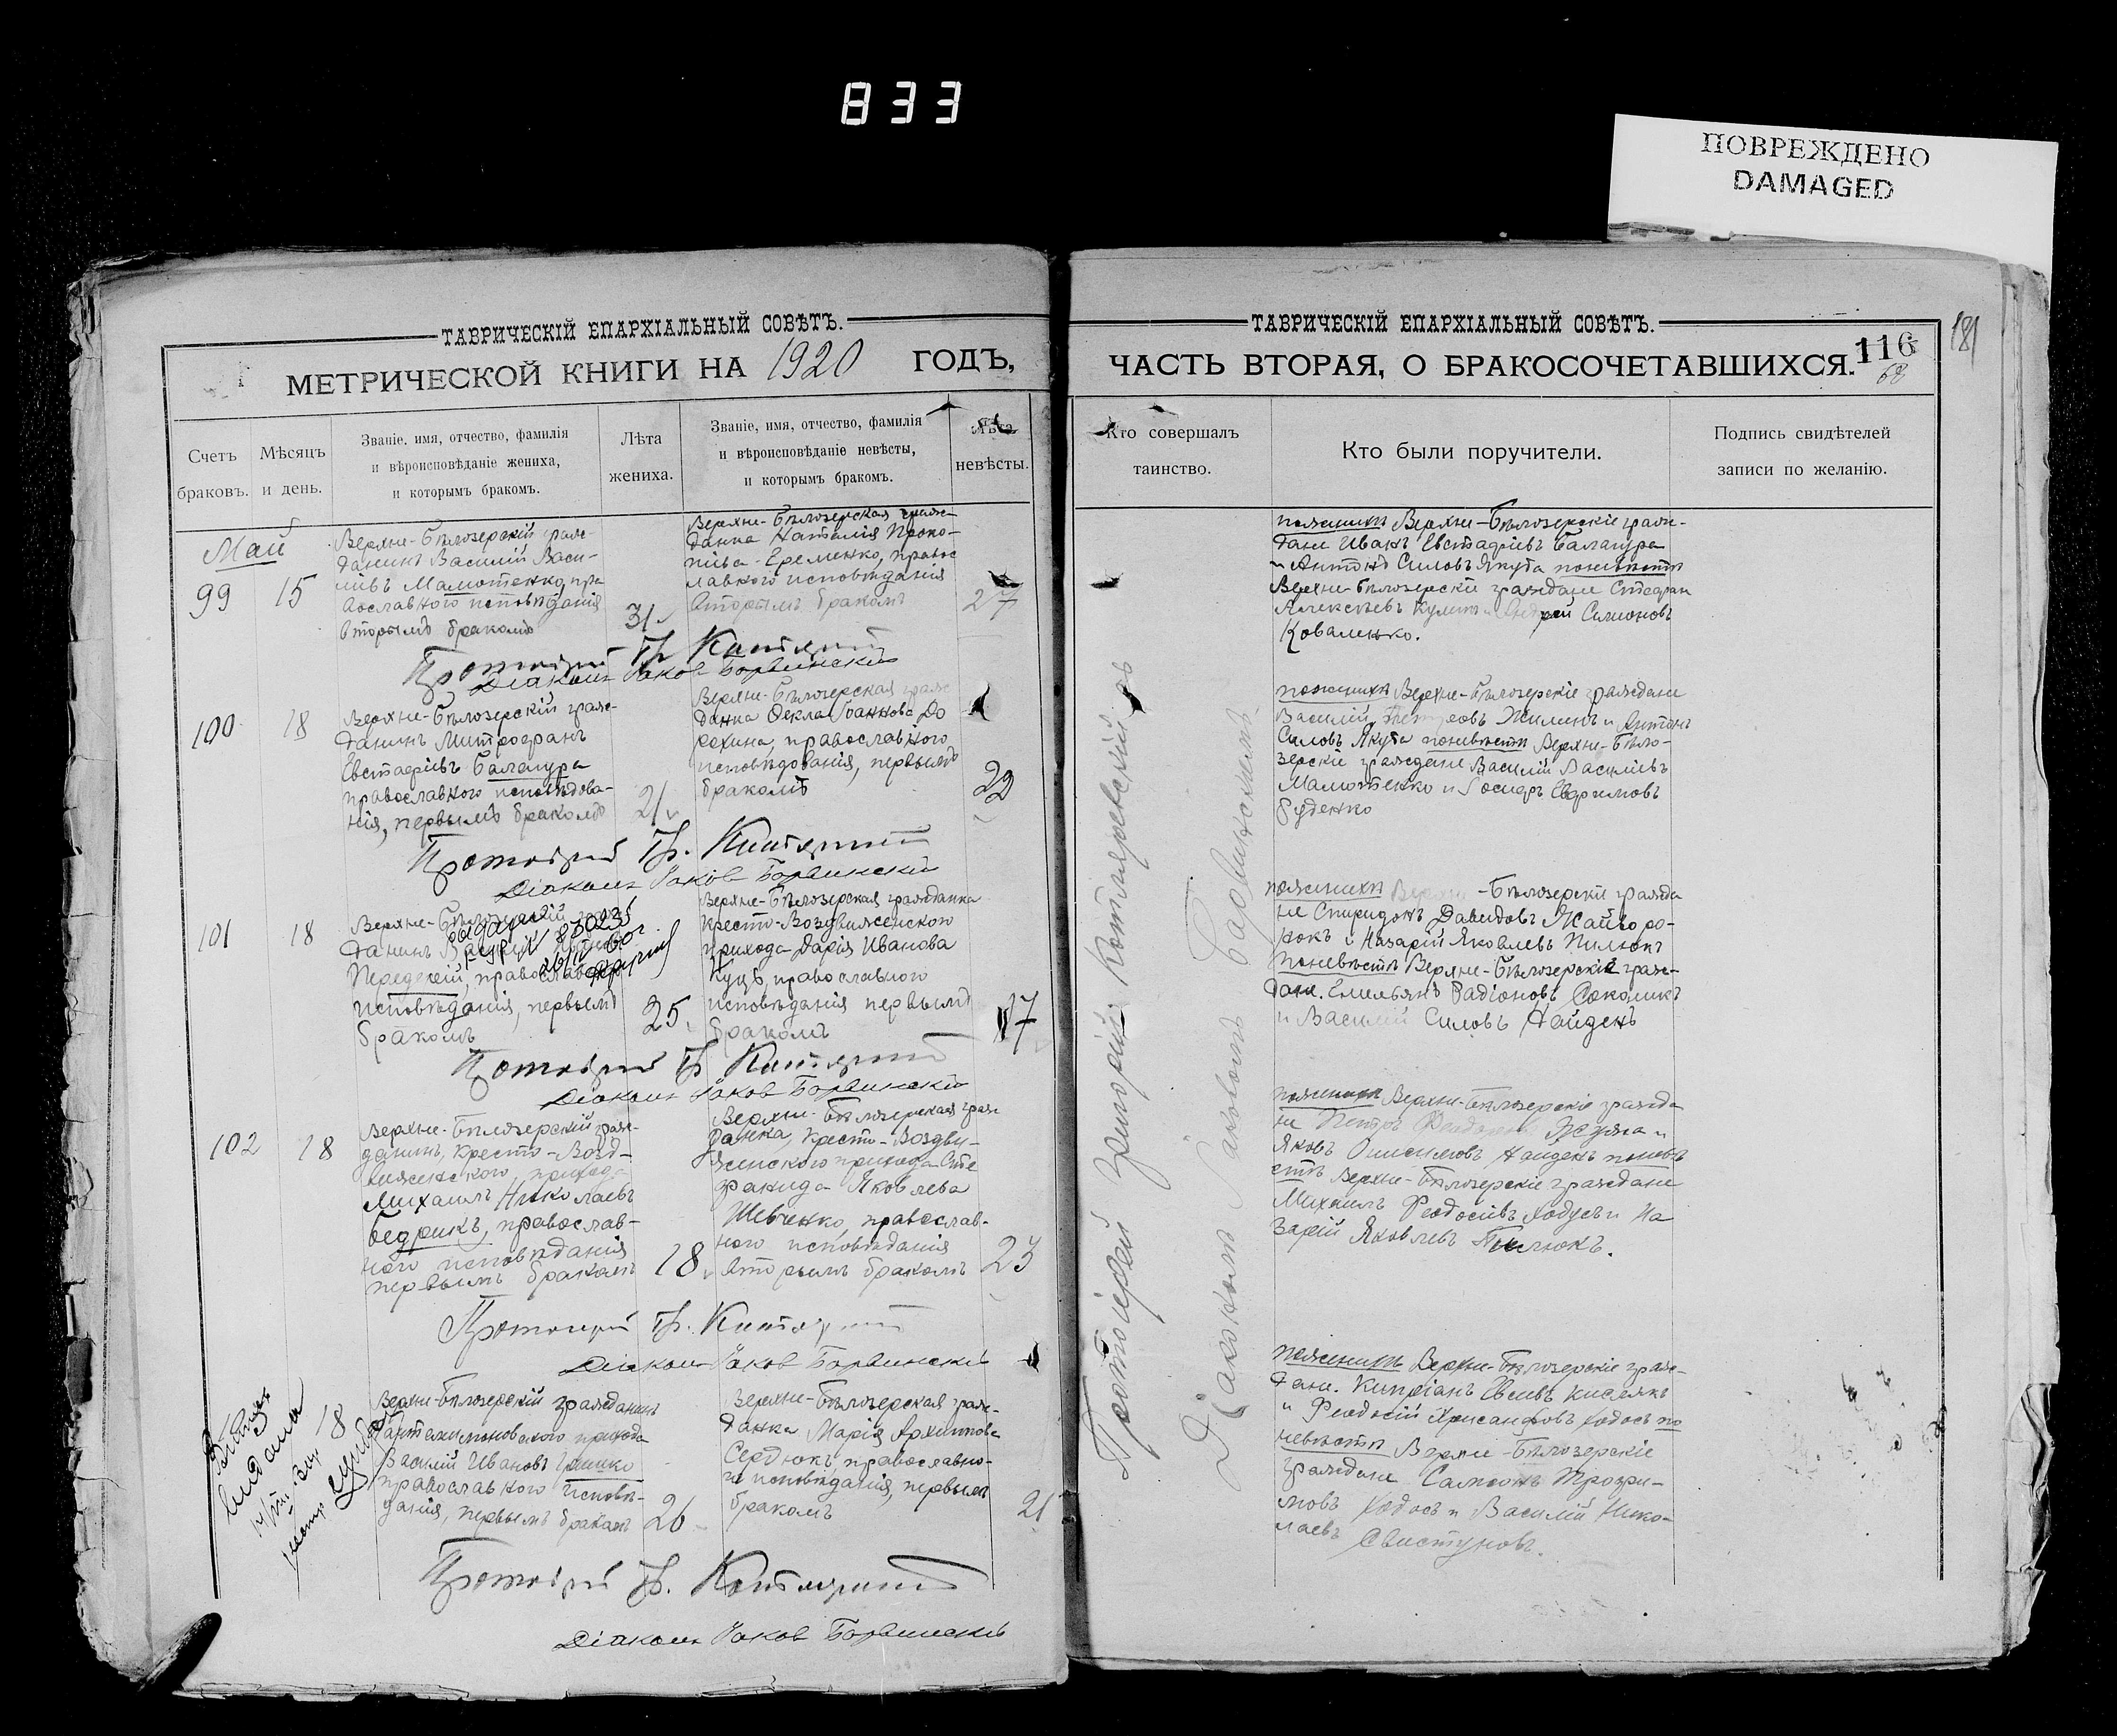 833
ПОВРЕЖДЕНО
DAMAGED
ТАВРИЧЕСКІЙ ЕПАРХІАЛЬНЫЙ СОВѢТЪ.
МЕТРИЧЕСКОЙ КНИГИ НА 1920 ГОДЪ,
Счетъ
браковъ.
Мѣсяцъ
и день.
Званіе, имя, отчество, фамилія
и вѣроисповѣданіе жениха,
и которымъ бракомъ.
Лѣта
жениха.
Званіе, имя, отчество, фамилія
и вѣроисповѣданіе невѣсты,
и которымъ бракомъ.
Лѣта
невѣсты.
Май
99
15
Верхне-Бѣлозерскій граж-
данинъ Василій Васи-
ліевъ Мамотенко, пра
вославного исповѣданія
вторымъ бракомъ
31
Верхне-Бѣлозерская граж-
данка Наталія Проко-
піева Еременко, правос
лавного исповѣданія
вторымъ бракомъ
27
Протоіерей Гр.
Діаконъ Іаковъ Борвинскій
100
18
Верхне-Бѣлозерскій граж-
данинъ Митрофанъ
Евстафіевъ Балагура
православного исповѣдова-
нія, первымъ бракомъ
21
Верхне-Бѣлозерская граж
данка Ѳекла Іоаннова До
рохина, православного
исповѣдованія, первымъ
бракомъ
22
Протоіерей Гр.
Діаконъ Іаковъ Борвинскій
101
18
Верхне-Бѣлозерскій граж
данинъ
православного
исповѣданія, первымъ
бракомъ
25
Верхне-Бѣлозерская гражданка
Кресто-Воздвиженского
прихода Дарія Иванова
Куцъ, православного
исповѣданія первымъ
бракомъ
17
Протоіерей Гр.
Діаконъ Іаковъ Борвинскій
102
18
Верхне-Бѣлозерскій граж-
данинъ, Кресто-Возд-
виженского прихода
Михаилъ Николаевъ
Бедрикъ, православ-
ного исповѣданія
первымъ бракомъ
18
Верхне-Бѣлозерская граж
данка, Кресто-Воздви-
женского прихода Сте
фанида Яковлева
Шевченко, православ-
ного исповѣданія
вторымъ бракомъ
23
Протоіерей Гр.
Діаконъ Іаковъ Борвинскій
выдана
18
Верхне-Бѣлозерскій гражданинъ
Пантелимоновского прихода
Василій Ивановъ Гришко
православного исповѣ-
данія, первымъ бракомъ
26
Верхне-Бѣлозерская граж-
данка Марія Архипова
Сердюкъ православно-
го исповѣданія, первымъ
бракомъ
21
Протоіерей Гр.
Діаконъ Іаковъ Борвинскій
ТАВРИЧЕСКІЙ ЕПАРХІАЛЬНЫЙ СОВѢТЪ.
ЧАСТЬ ВТОРАЯ, О БРАКОСОЧЕТАВШИХСЯ.
116
68
181
Кто совершалъ
таинство.
Кто были поручители.
Подпись свидѣтелей
записи по желанію.
Протоіерей Григорій
Діакономъ Іаковомъ Борвинскимъ
пожениху Верхне-Бѣлозерскіе граж-
дане Иванъ Евстафіевъ Балагура
и Антонъ Силовъ Якуба поневѣсте
Верхне-Бѣлозерскіе граждане Стефан
Алексѣевъ и Андрей Симоновъ
Коваленко.
пожениху Верхне-Бѣлозерскіе граждане
Василій Жилинъ и Антонъ
Силовъ Якуба поневѣсте Верхне-Бѣло-
зерскіе граждане Василій Василіевъ
Мамотенко и Іосифъ Ефримовъ
Руденко
пожениху Верхне-Бѣлозерскіе гражда
не Спиридонъ Давидовъ Майборо-
и Назарій Яковлевъ Пилюкъ
поневѣсте Верхне-Бѣлозерскіе граж-
дане. Емельянъ Радіоновъ Соколикъ
и Василій Силовъ Найденъ
пожениху Верхне-Бѣлозерскіе гражда
не Петръ и
Яковъ Онисимовъ Найденъ поневѣ
сте Верхне-Бѣлозерскіе граждане
Михаилъ Феодосіевъ Ходусъ и На
зарій Яковлевъ Пилюкъ.
пожениху Верхне-Бѣлозерскіе граж-
дане. Кипріанъ Киселякъ
и Феодосій Хрисанфовъ Ходосъ по
невѣсте Верхне-Бѣлозерскіе
граждане Самсонъ Трофи-
мовъ Ходосъ и Василій Нико-
лаевъ Свистуновъ.